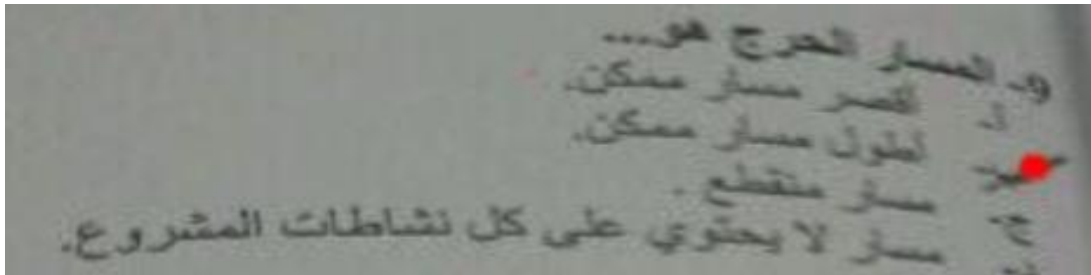 9- المسار الحرج هو...
أ- أقصر مسار ممكن.
أطول مسار ممكن.
ج- مسار متقطع .
مسار لا يحتوي على كل نشاطات المشروع.